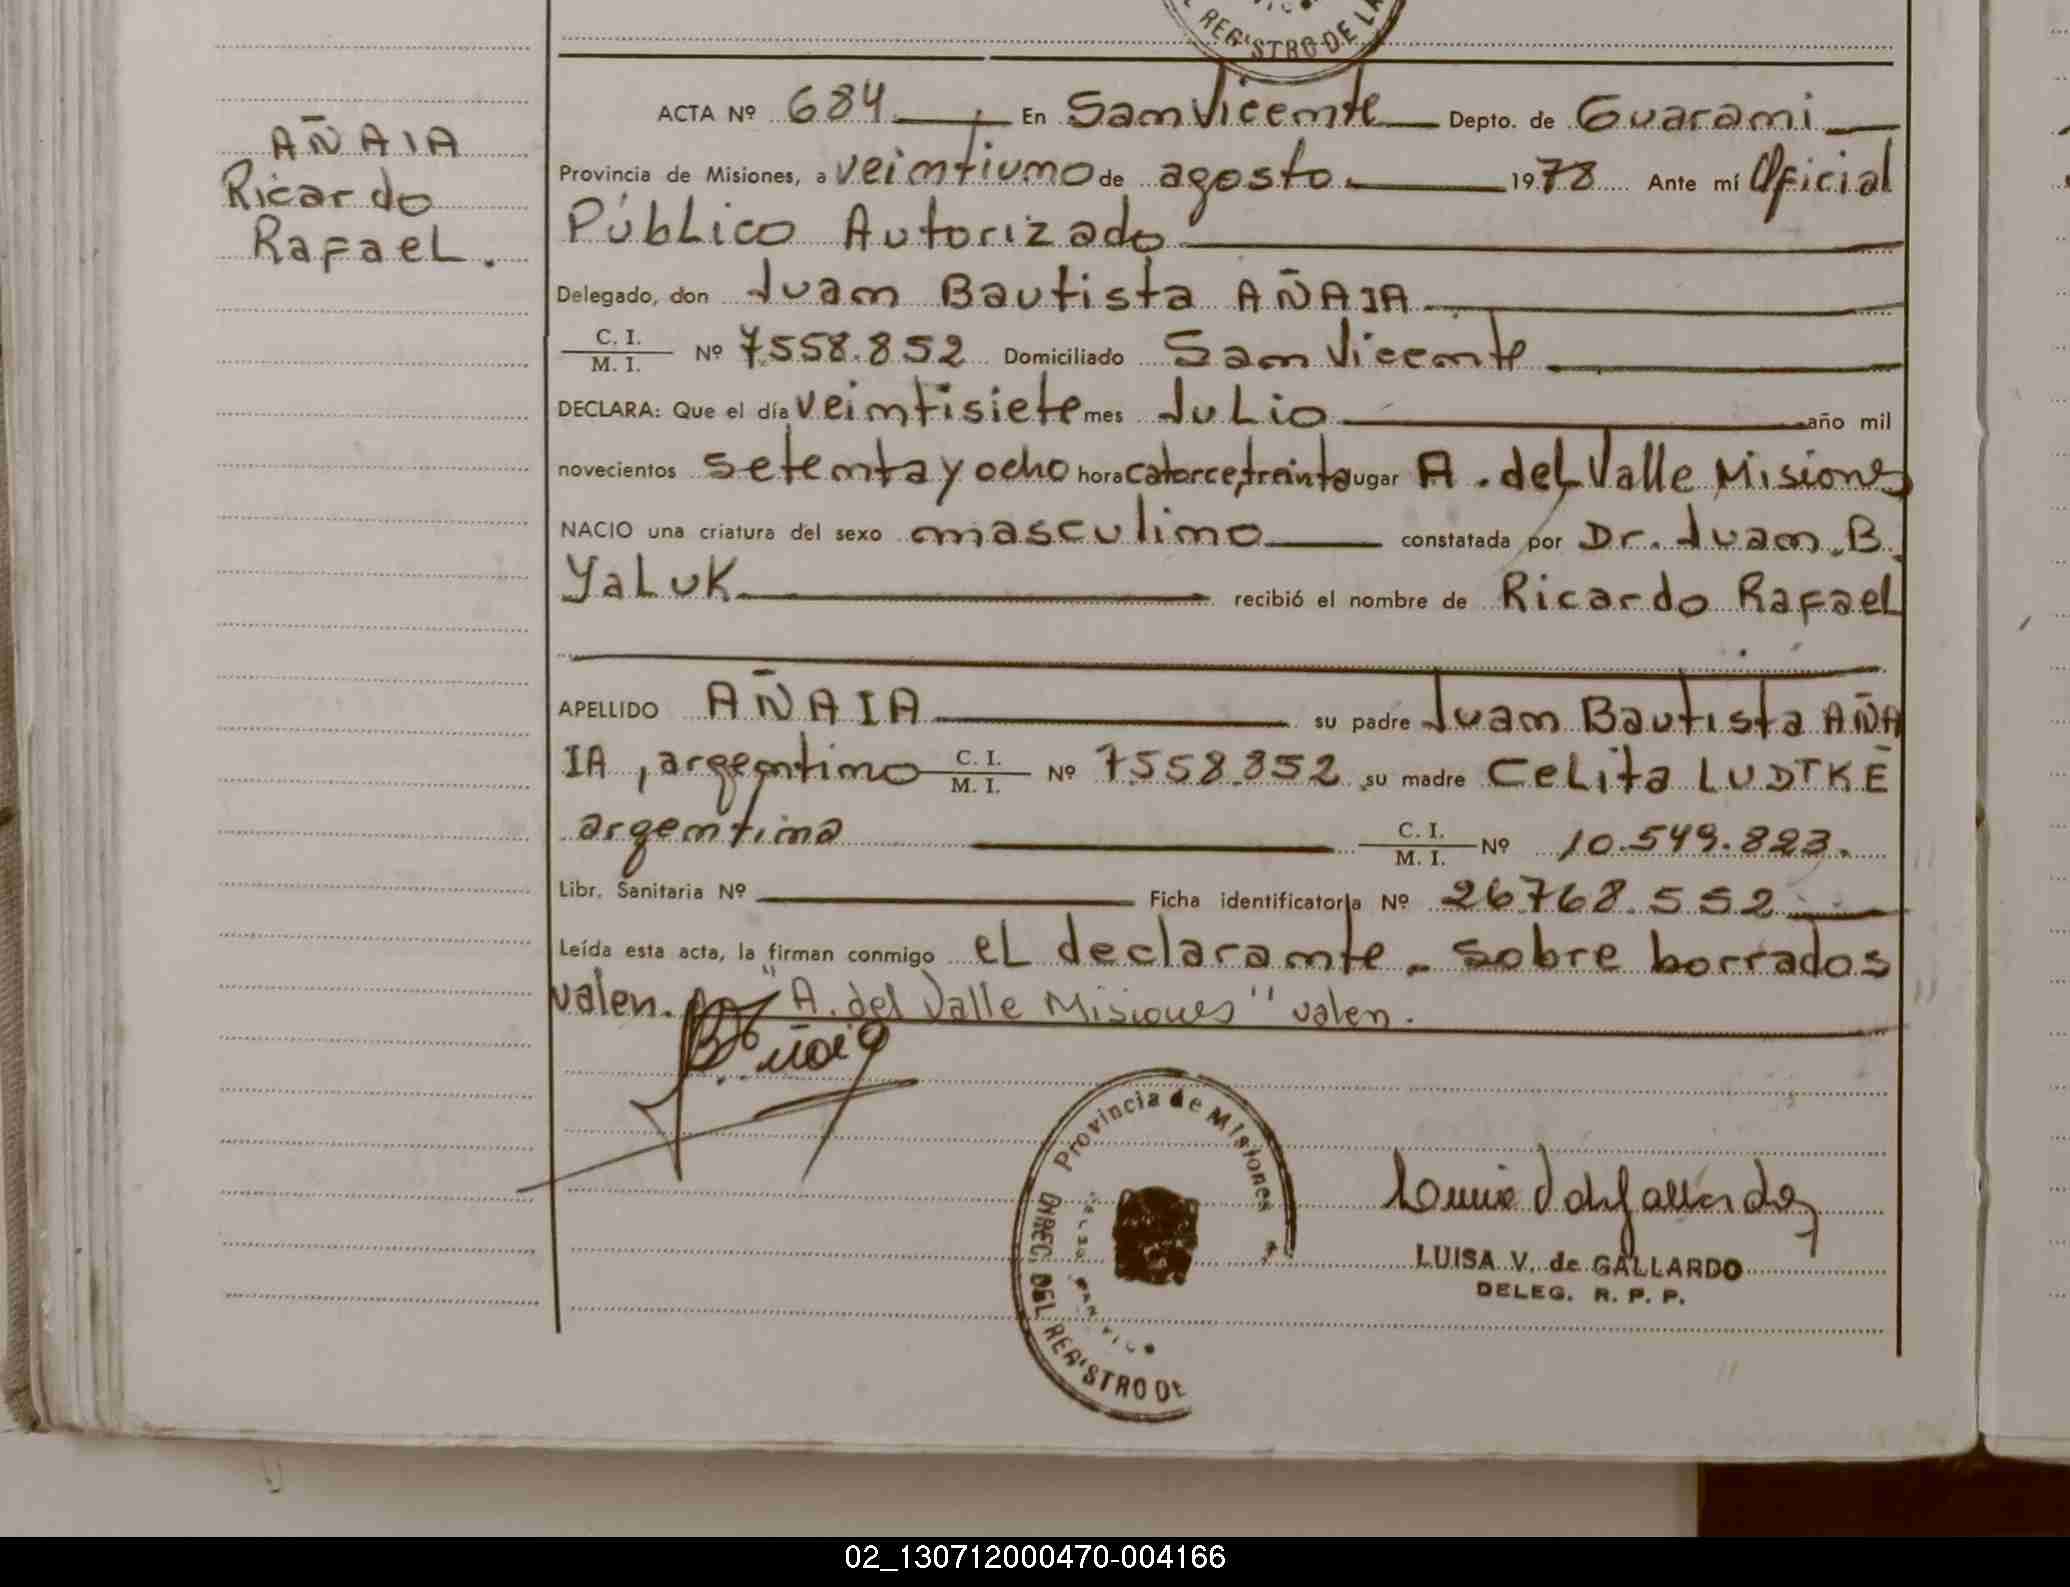 REGISTRO DE LA
AÑAIA
Ricardo
Rafael.
ACTA Nº 684 En San Vicente Depto. de Guarani
Provincia de Misiones, a veintiuno de agosto. 1978 Ante mí Oficial
Público Autorizado
Delegado, don Juan Bautista AÑAIA
C. I.
M. I. Nº 7558.852 Domiciliado San Vicente
DECLARA: Que el día veintisiete mes Julio año mil
novecientos setenta y ocho hora catorce, treinta ugar A. del Valle Misiones
NACIO una criatura del sexo masculino constatada por Dr. Juan B.
Yaluk recibió el nombre de Ricardo Rafael
APELLIDO AÑAIA su padre Juan Bautista AÑA
IA, argentino C. I. M. I. Nº 7558.852 su madre Celita LUDTKE
argentina C. I. M. I. Nº 10.549.823.
Libr. Sanitaria Nº Ficha identificatoria Nº 26768.552
Leída esta acta, la firman conmigo el declarante. sobre borrados
valen. "A. del Valle Misiones" valen.
Provincia de Misiones
DIREC. DEL REGISTRO DE
LUISA V. de GALLARDO
DELEG. R. P. P.
02_130712000470-004166